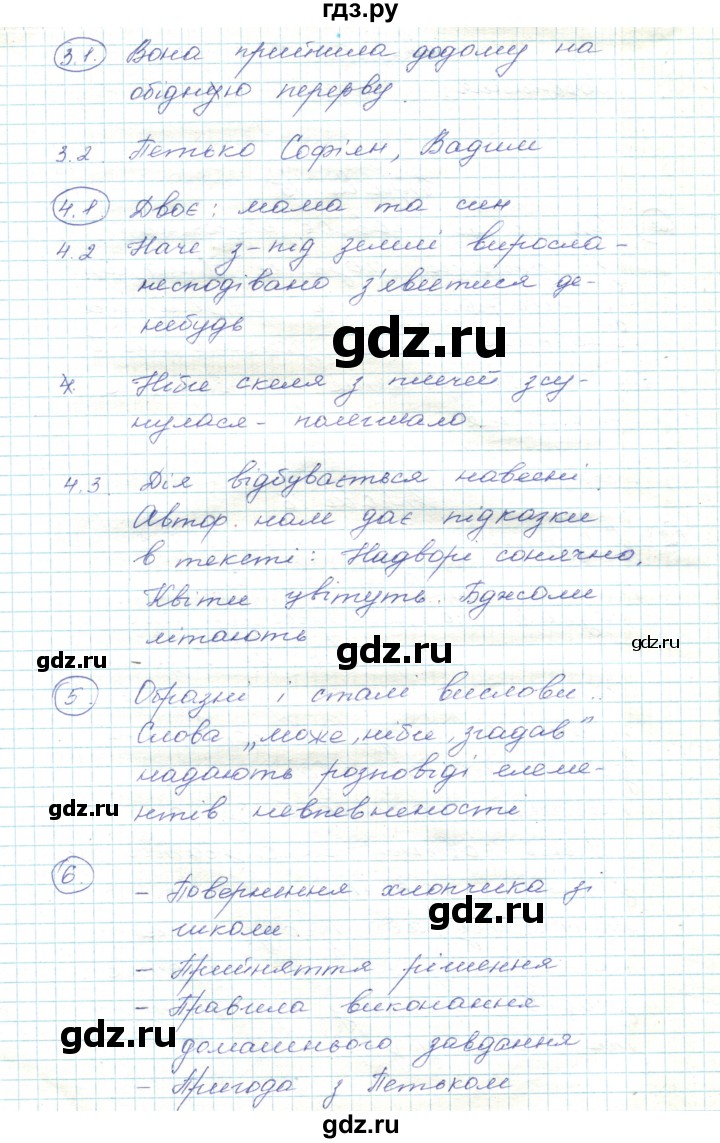 гдз.ру
3.1. Вона прийшла додому на
обідную перерву.
3.2. Петько Софіян, Вадим
4.1 Двоє: мама та син
4.2 Наче з-під землі виросла -
несподівано з'явитися де-
небудь
gdz.ru
4. Ніби скеля з плечей зсу-
нулася - полегшало.
4.3. Дія відбувається навесні.
Автор нам дає підказки
в тексті: Надворі сонячно.
Квіти цвітуть. Бджоли
літають
gdz.ru
gdz.ru
gdz.ru
5. Образні і сталі вислови.
Слова „може, ніби, згадав"
надають розповіді елеме-
нтів невпевненості
gdz.ru
gdz.ru
6. - Повернення хлопчика зі
школи.
gdz.ru
- Прийняття рішення
- Правила виконання
домашнього завдання
gdz.ru
- Пригода з Петьком
gdz.ru